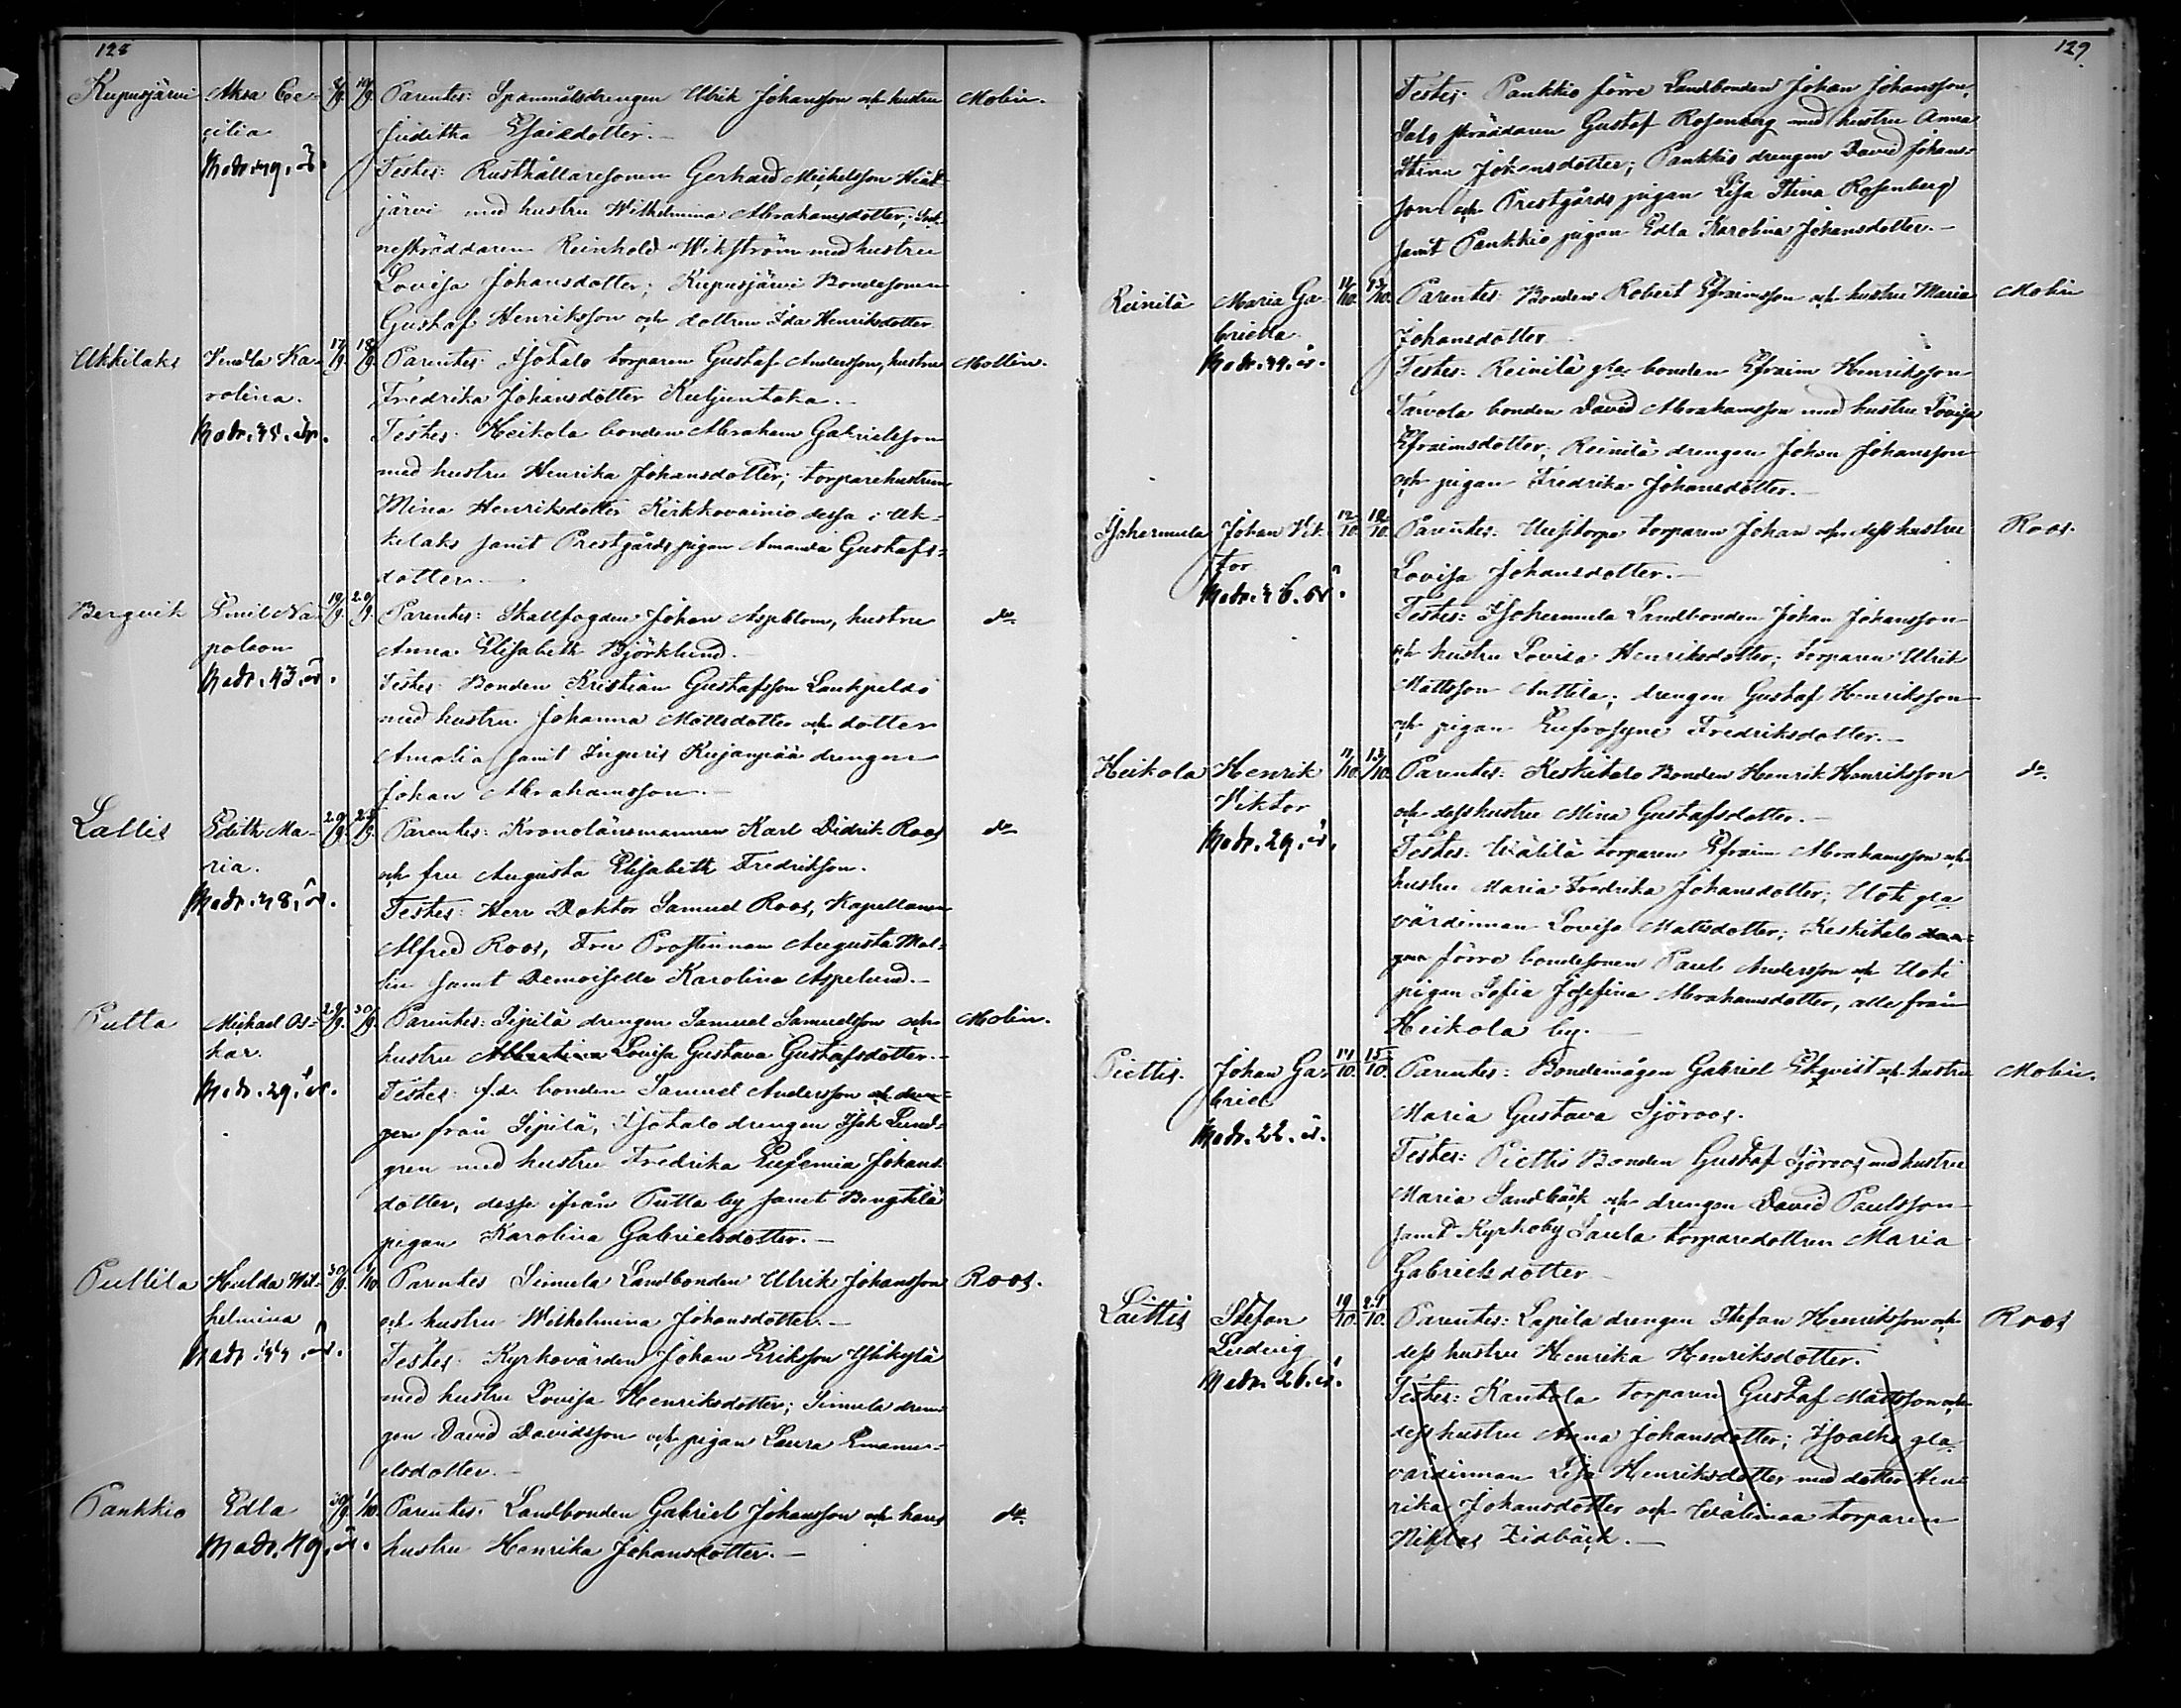 128
Kupusjärvi Aksa Cec- 8/9. 10/9. Parentes: Spanmålsdrengen Ulrik Johansson och hustru Molin.
cilia Juditha Esaiedotter.
Modr. 29. år. Testes: Rusthållaresonen Gerhard Michelsson
järvi med hustru Wilhelmina Abrahamsdotter;
neskräddaren Reinhold Wikström med hustru
Lovisa Johansdotter; Kupusjärvi Bondesonen
Gustaf Henriksson och dottren Ida Henriksdotter
Ukkilaks Vendla Ka- 17/9. 18/9. Parentes: Isotalo torparen Gustaf Andersson, hustru Mollin.
rolina. Fredrika Johansdotter Kuljuntaka.
Modr. 35. år. Testes: Heikola bonden Abraham Gabrielsson
med hustru Henrika Johansdotter; torparehustrun
Mina Henriksdotter Kirkkovainio dessa i Uk-
kilaks samt Prestgårds pigan Amanda Gustafs-
dotter.
Bergvik Emil Na- 19/9. 20/9. Parentes: Skallfogden Johan Aspblom, hustru do
poleon Anna Elisabeth Björklund.
Modr. 43. år. Testes: Bonden Kristian Gustafsson Laukpeldo
med hustru Johanna Mattsdotter och dotter
Amalia samt Inguris Kujanpää drengen
Johan Abrahamsson.
Lallis Edith Ma- 20/9. Parentes: Kronolänsmannen Karl Didrik Roos do
ria. och fru Augusta Elisabeth Fredriksson.
Modr. 38. år. Testes: Herr Doktor Samuel Roos, Kapellanen
Alfred Roos, Fru Prostinnan Augusta Mol-
lin samt Demoiselle Karolina Aspelund.
Putta Michael Os- 29/9. 30/9. Parentes: Sipilä drengen Samuel Samuelsson och Molin.
kar. hustru Albertina Lovisa Gustava Gustafsdotter.
Modr. 29. år. Testes: f.d. bonden Samuel Andersson och dren-
gen från Sipilä, Isotalo drengen Isak Lund-
gren med hustru Fredrika Eufemia Johans-
dotter, dessa ifrån Putta by samt Bengtilä
pigan Karolina Gabrielsdotter.
Puttila Hulda Wil- 30/9. 1/10 Parentes Simula Landbonden Ulrik Johansson Roos.
helmina och hustru Wilhelmina Johansdotter.
Modr. 44. år. Testes: Kyrkovärden Johan Eriksson Ylikylä
med hustru Lovisa Henriksdotter; Simula dren-
gen David Davidsson och pigan Laura Emanu-
elsdotter.
Pankkio Edla 30/9. 1/10. Parentes: Landbonden Gabriel Johansson och hans do
Modr. 49. år. hustru Henrika Johansdotter.
129.
Testes: Pankkio förre Landbonden Johan Johansson,
Salo skräddaren Gustaf Rosenberg med hustru Anna
Stina Johansdotter; Pankkio drengen David Johans-
son och Prestgårds pigan Lisa Stina Rosenberg
samt Pankkio pigan Edla Karolina Johansdotter.
Reinilä Maria Ga- 11/10. 13/10. Parentes: Bonden Robert Efraimsson och hustru Maria Molin
briella Johansdotter
Modr. 44. år. Testes: Reinilä gla bonden Efraim Henriksson
Tarvola bonden David Abrahamsson med hustru Lovisa
Efraimsdotter; Reinilä drengen Johan Johansson
och pigan Fredrika Johansdotter.
Isohermula Johan Vik- 12/10. 12/10. Parentes: torparen Johan och dess hustru Roos.
tor Lovisa Johansdotter.
Modr. 36. år. Testes: Isohermula Landbonden Johan Johansson
och hustru Lovisa Henriksdotter; torparen Ulrik
Mattsson Anttila; drengen Gustaf Henriksson
och pigan Eufrosyne Fredriksdotter.
Heikola Henrik 11/10. 13/10. Parentes: Keskitalo Bonden Henrik Henriksson do.
Viktor och dess hustru Mina Gustafsdotter.
Modr. 29. år. Testes: Wälilä torparen Efraim Abrahamsson och
hustru Maria Fredrika Johansdotter; Uoti gla
värdinnan Lovisa Mattsdotter; Keskitalo dren-
gen förre bondesonen Paul Andersson och Uoti
pigan Sofia Josefina Abrahamsdotter, alla från
Heikola by.
Piettis. Johan Ga- 14/10. 15/10. Parentes: Bondemågen Gabriel Ekqvist och hustru Molin.
briel Maria Gustava Sjöroos.
Modr. 22. år. Testes: Piettis Bonden Gustaf Sjöroos med hustru
Maria Sandbäck och drengen David Paulsson
samt Kyrkoby Laula torparedottren Maria
Gabrielsdotter
Laittis Stefan 19/10. 21/10. Parentes: Lapila drengen Stefan Henriksson och Roos
Ludvig dess hustru Henrika Henriksdotter.
Modr. 26. år. Testes: Kantola torparen Gustaf Mattsson och
dess hustru Anna Johansdotter; gla
värdinnan Lisa Henriksdotter med dotter Hen-
rika Johansdotter och Wälimaa torparen
Niklas Lidbäck.